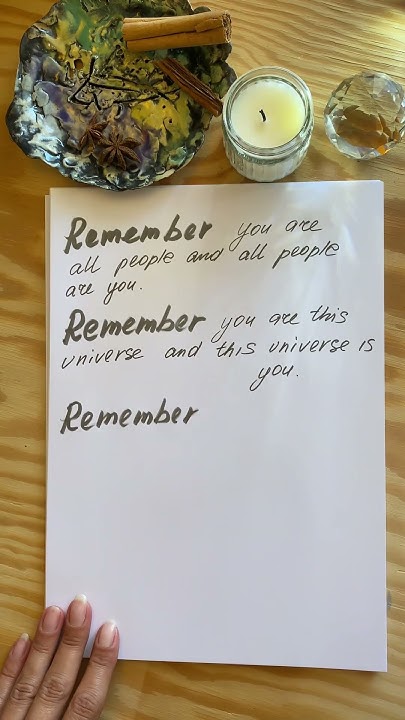 Remember you are
all people and all people
are you.
Remember you are this
universe and this universe is
you.
Remember